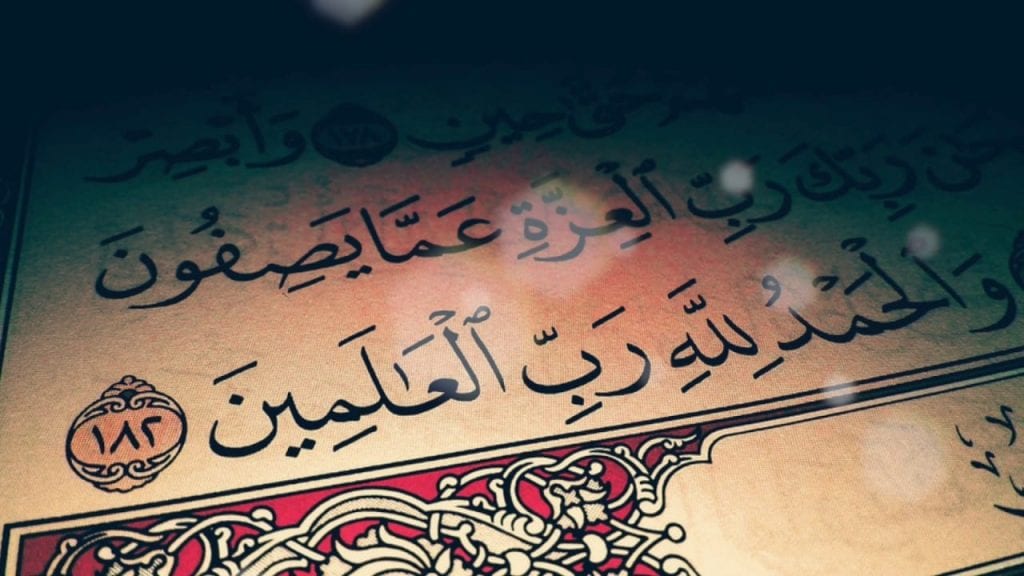 حَتَّىٰ حِينٍ ١٧٨ وَأَبْصِرْ
رَبِّكَ رَبِّ ٱلْعِزَّةِ عَمَّا يَصِفُونَ
وَٱلْحَمْدُ لِلَّهِ رَبِّ ٱلْعَٰلَمِينَ ١٨٢